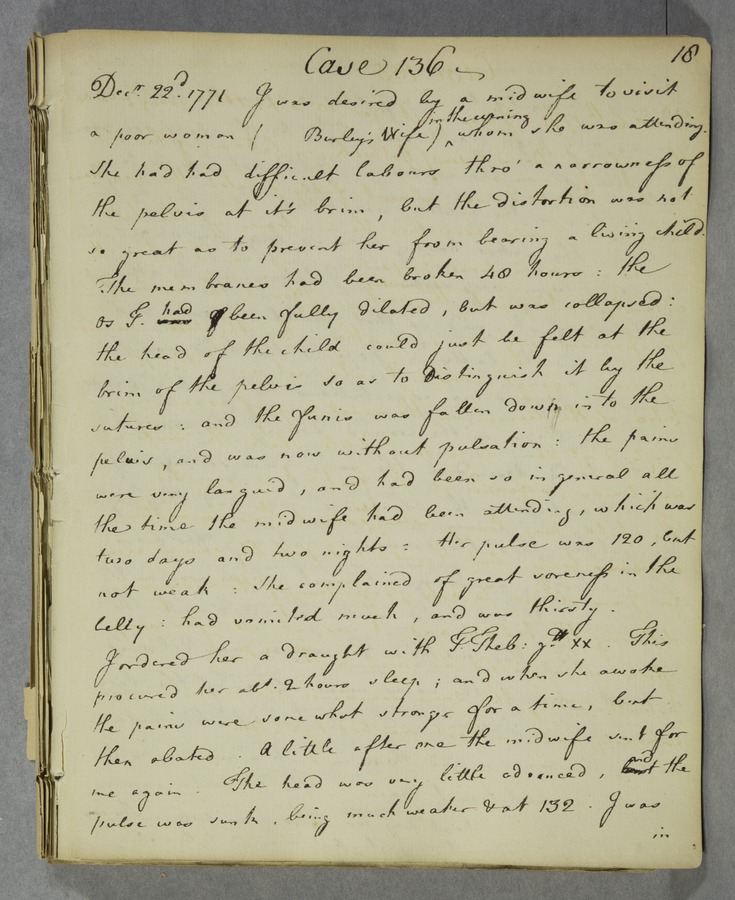 18
Case 136
Decr. 22d. 1771 I was desired by a midwife to visit
in the evening
a poor woman ( Burley's Wife) ^ whom she was attending.
She had had difficult labours thro' a narrowness of
the pelvis at it's brim, but the distortion was not
so great as to prevent her from bearing a living child.
The membranes had been broken 48 hours : the
had
os T. was been fully dilated, but was collapsed :
the head of the child could just be felt at the
brim of the pelvis so as to distinguish it by the
sutures : and the funis was fallen down into the
pelvis, and was now without pulsation : the pains
were very languid, and had been so in general all
the time the midwife had been attending, which was
two days and two nights : Her pulse was 120, but
not weak : She complained of great soreness in the
belly : had vomited much, and was thirsty.
I ordered her a draught with T. Theb: gtt xx. This
procured her abt. 2 hours sleep; and when she awoke
the pains were somewhat stronger for a time, but
then abated. A little after one the midwife sent for
and
me again. The head was very little advanced, but the
pulse was sunk, being much weaker & at 132. I was
in